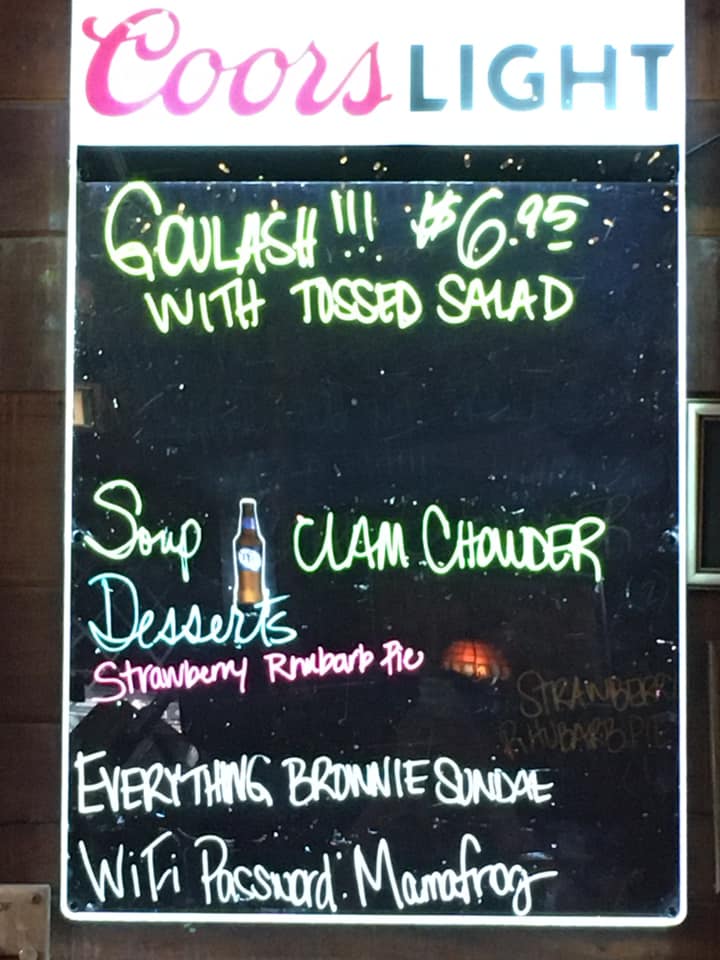 Coors LIGHT
GOULASH!!! $6.95
WITH TOSSED SALAD
Soup CLAM CHOWDER
Desserts
Strawberry Rhubarb Pie
STRAWBERR
RHUBARB PIE
EVERYTHING BROWNIE SUNDAE
WiFi Password: Mamafrog